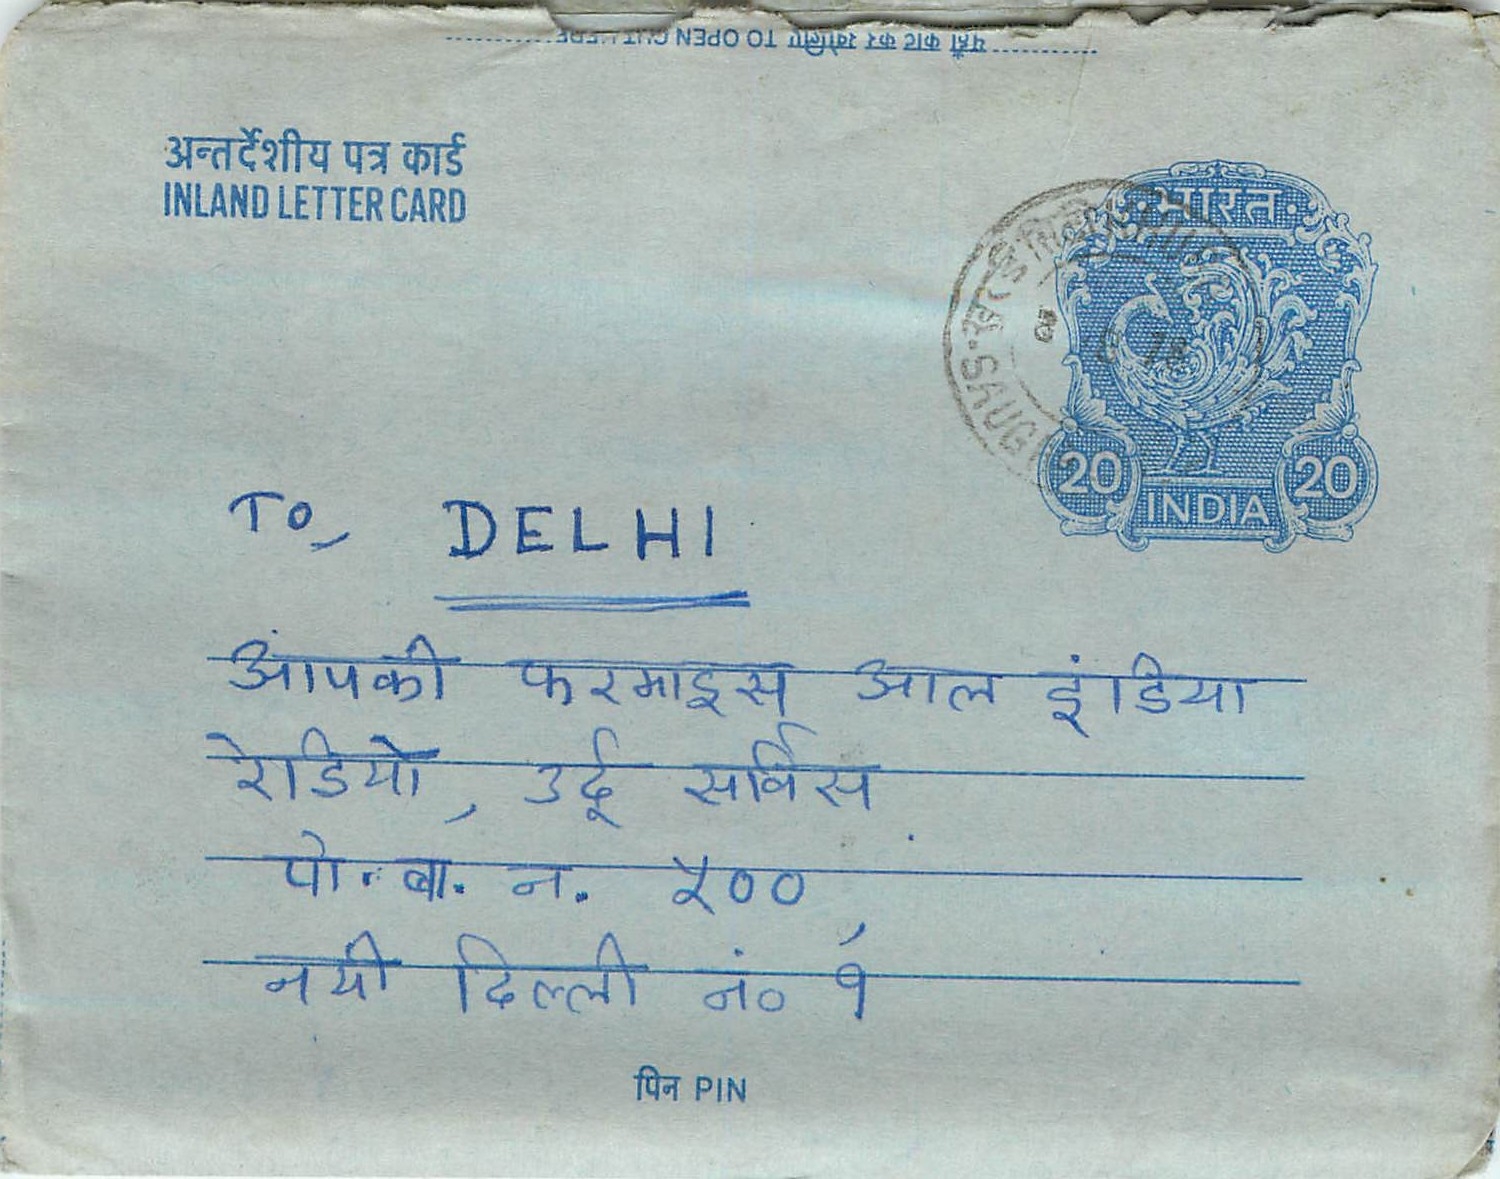 यहाँ काट कर खोलिए TO OPEN CUT HERE
अन्तर्देशीय पत्र कार्ड
INLAND LETTER CARD
भारत
20 20
INDIA
To, DELHI
आपकी फरमाइस आल इंडिया
रेडियो, उर्दू सर्विस
पो. बा. न. ५००,
नयी दिल्ली नं० १
पिन PIN